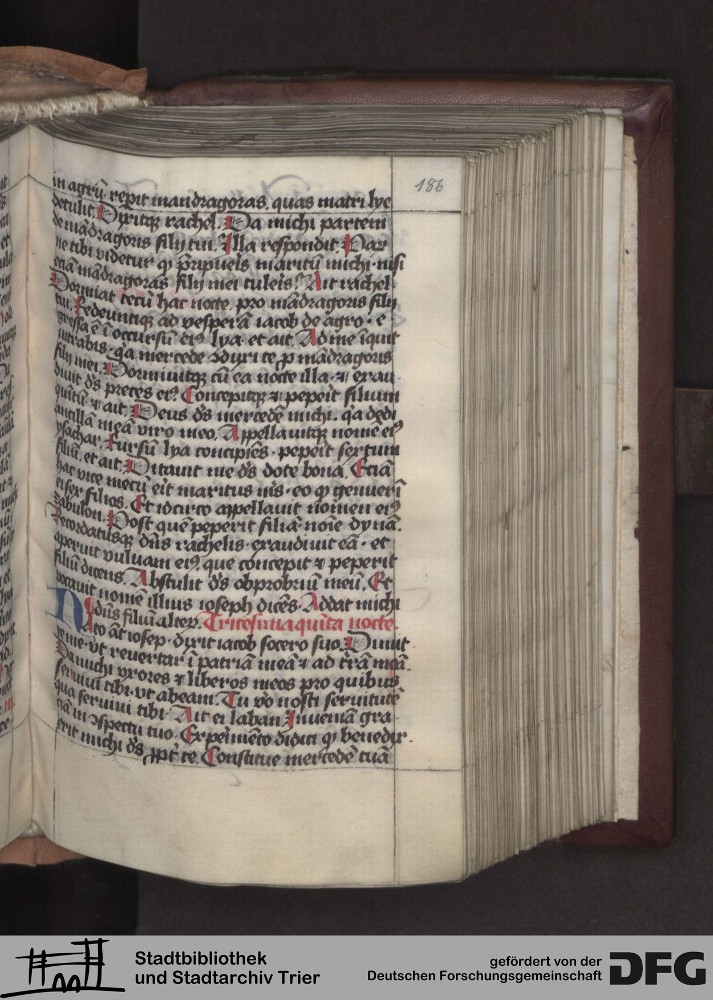 186
in agrū repit mandragoras, quas matri lye
detulit. Dixitqꝫ rachel. Da michi partem
de mādragoris filij tui. Illa respondit. Par
ne tibi videtur qꝫ p̄ripueis maritū michi nisi
eciā mādragoras filij mei tuleis? Ait rachel.
Dormiat tecū hac nocte, pro mādragoris filij
tui. Redeuntiqꝫ ad vesperā iacob de agro · e
gressa ē ī occursū eiꝰ lya · et ait. Ad me īquit
intrabis, q̄a mercede ꝯduxi te p̱ mādragoris
filij mei. Dormiuitqꝫ cū ea nocte illa · ⁊ exau
diuit dꝰs preces eiꝰ. Concepitqꝫ ⁊ pepeit filium
quītū ⁊ ait. Deus dꝰs mercedē michi. q̄a dedi
ancillā meā viro meo. Appellauitqꝫ nomē eiꝰ
ysachar. Rursū lya concipiēs · peperit sextum
filiū, et ait. Ditauit me dꝰs dote bona. Eciā
hac vice mecū eit maritus mꝰs · eo qꝫ genueri
ei sex filios. Et idcirco appellauit nomen eiꝰ
zabulon. Post quē peperit filiā · noīe dynā.
Recordatusqꝫ dn̄s rachelis · exaudiuit eā · et
aperuit vuluam eiꝰ, que concepit ⁊ peperit
filiū dicens. Abstulit dꝰs obprobriū meū. Et
vocauit nomē illius ioseph dicēs. Addat michi
dn̄s filiū alter. Tricesimaquīta nocte.
Nato āt iosep · dixit iacob socero suo. Dimit
te me · vt reuertar ī patriā meā ⁊ ad trā meā.
Da michi vxores ⁊ liberos meos pro quibus
seruiui tibi · vt abeam. Tu vo nosti seruitutē
qua seruiui tibi. Ait ei laban. Inueniā gra
ciā in ꝯspectu tuo. Expeimēto didici qꝫ benedix
erit michi dꝰs ꝓpt̄ te. Constitue mercedē tuā
Stadtbibliothek
und Stadtarchiv Trier
gefördert von der
Deutschen Forschungsgemeinschaft
DFG